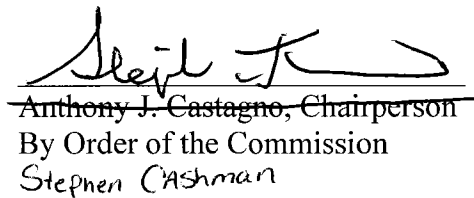 Anthony J. Castagno, Chairperson
By Order of the Commission
Stephen Cashman